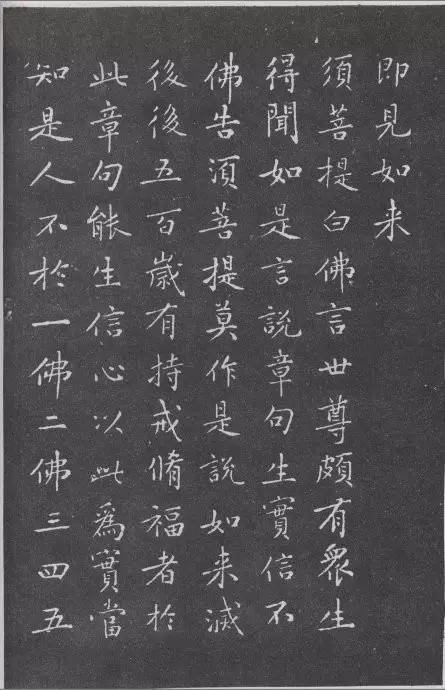 即見如来
須菩提白佛言世尊頗有衆生
得聞如是言說章句生實信不
佛告須菩提莫作是說如来滅
後後五百歲有持戒脩福者於
此章句能生信心以此為實當
知是人不於一佛二佛三四五